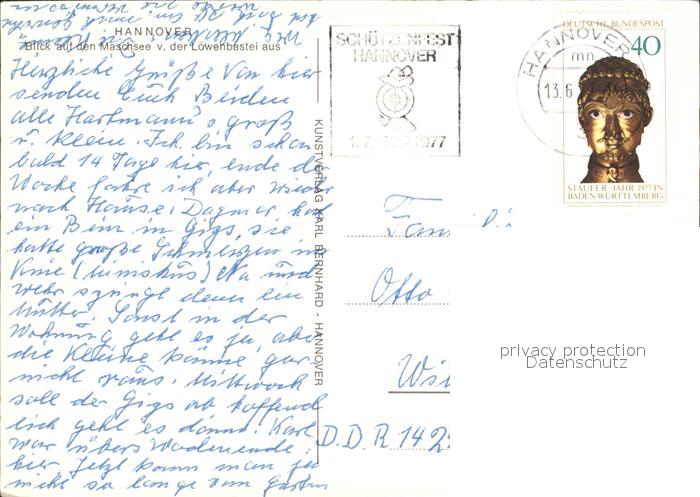 HANNOVER
Blick auf den Maschsee v. der Löwenbastei aus
Herzliche Grüße von hier
senden Euch Beiden
alle Hartmanns groß
u. klein. Ich bin schon
bald 14 Tage hier, ende der
Woche fahre ich aber wieder
nach Hause. Dagmar, hat
ein Bein in Gips, sie
hatte große Schmerzen im
Knie (
Na und
wer springt denn ein
Mutter. Sonst in der
Wohnung geht es ja, aber
die Kleine könne gar
nicht raus. Mittwoch
soll der Gips ab hoffend
lich geht es dann. Karl
war übers Wochenende
hier. Jetzt kann man ja
nicht so lange vom Garten
KUNSTVERLAG KARL BERNHARD - HANNOVER
SCHÜTZENFEST
HANNOVER
1.7.-10.7.1977
HANNOVER
mn
13.6
DEUTSCHE BUNDESPOST
40
STAUFER-JAHR 1977 IN
BADEN-WÜRTTEMBERG
Fami
Otto
D.D.R 142
privacy protection
Datenschutz